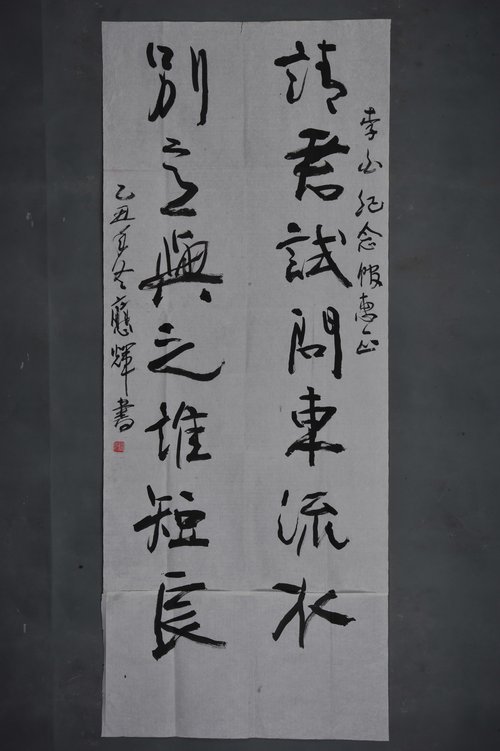 李白紀念館惠正
請君試問東流水
別意與之誰短長
乙丑冬應輝書